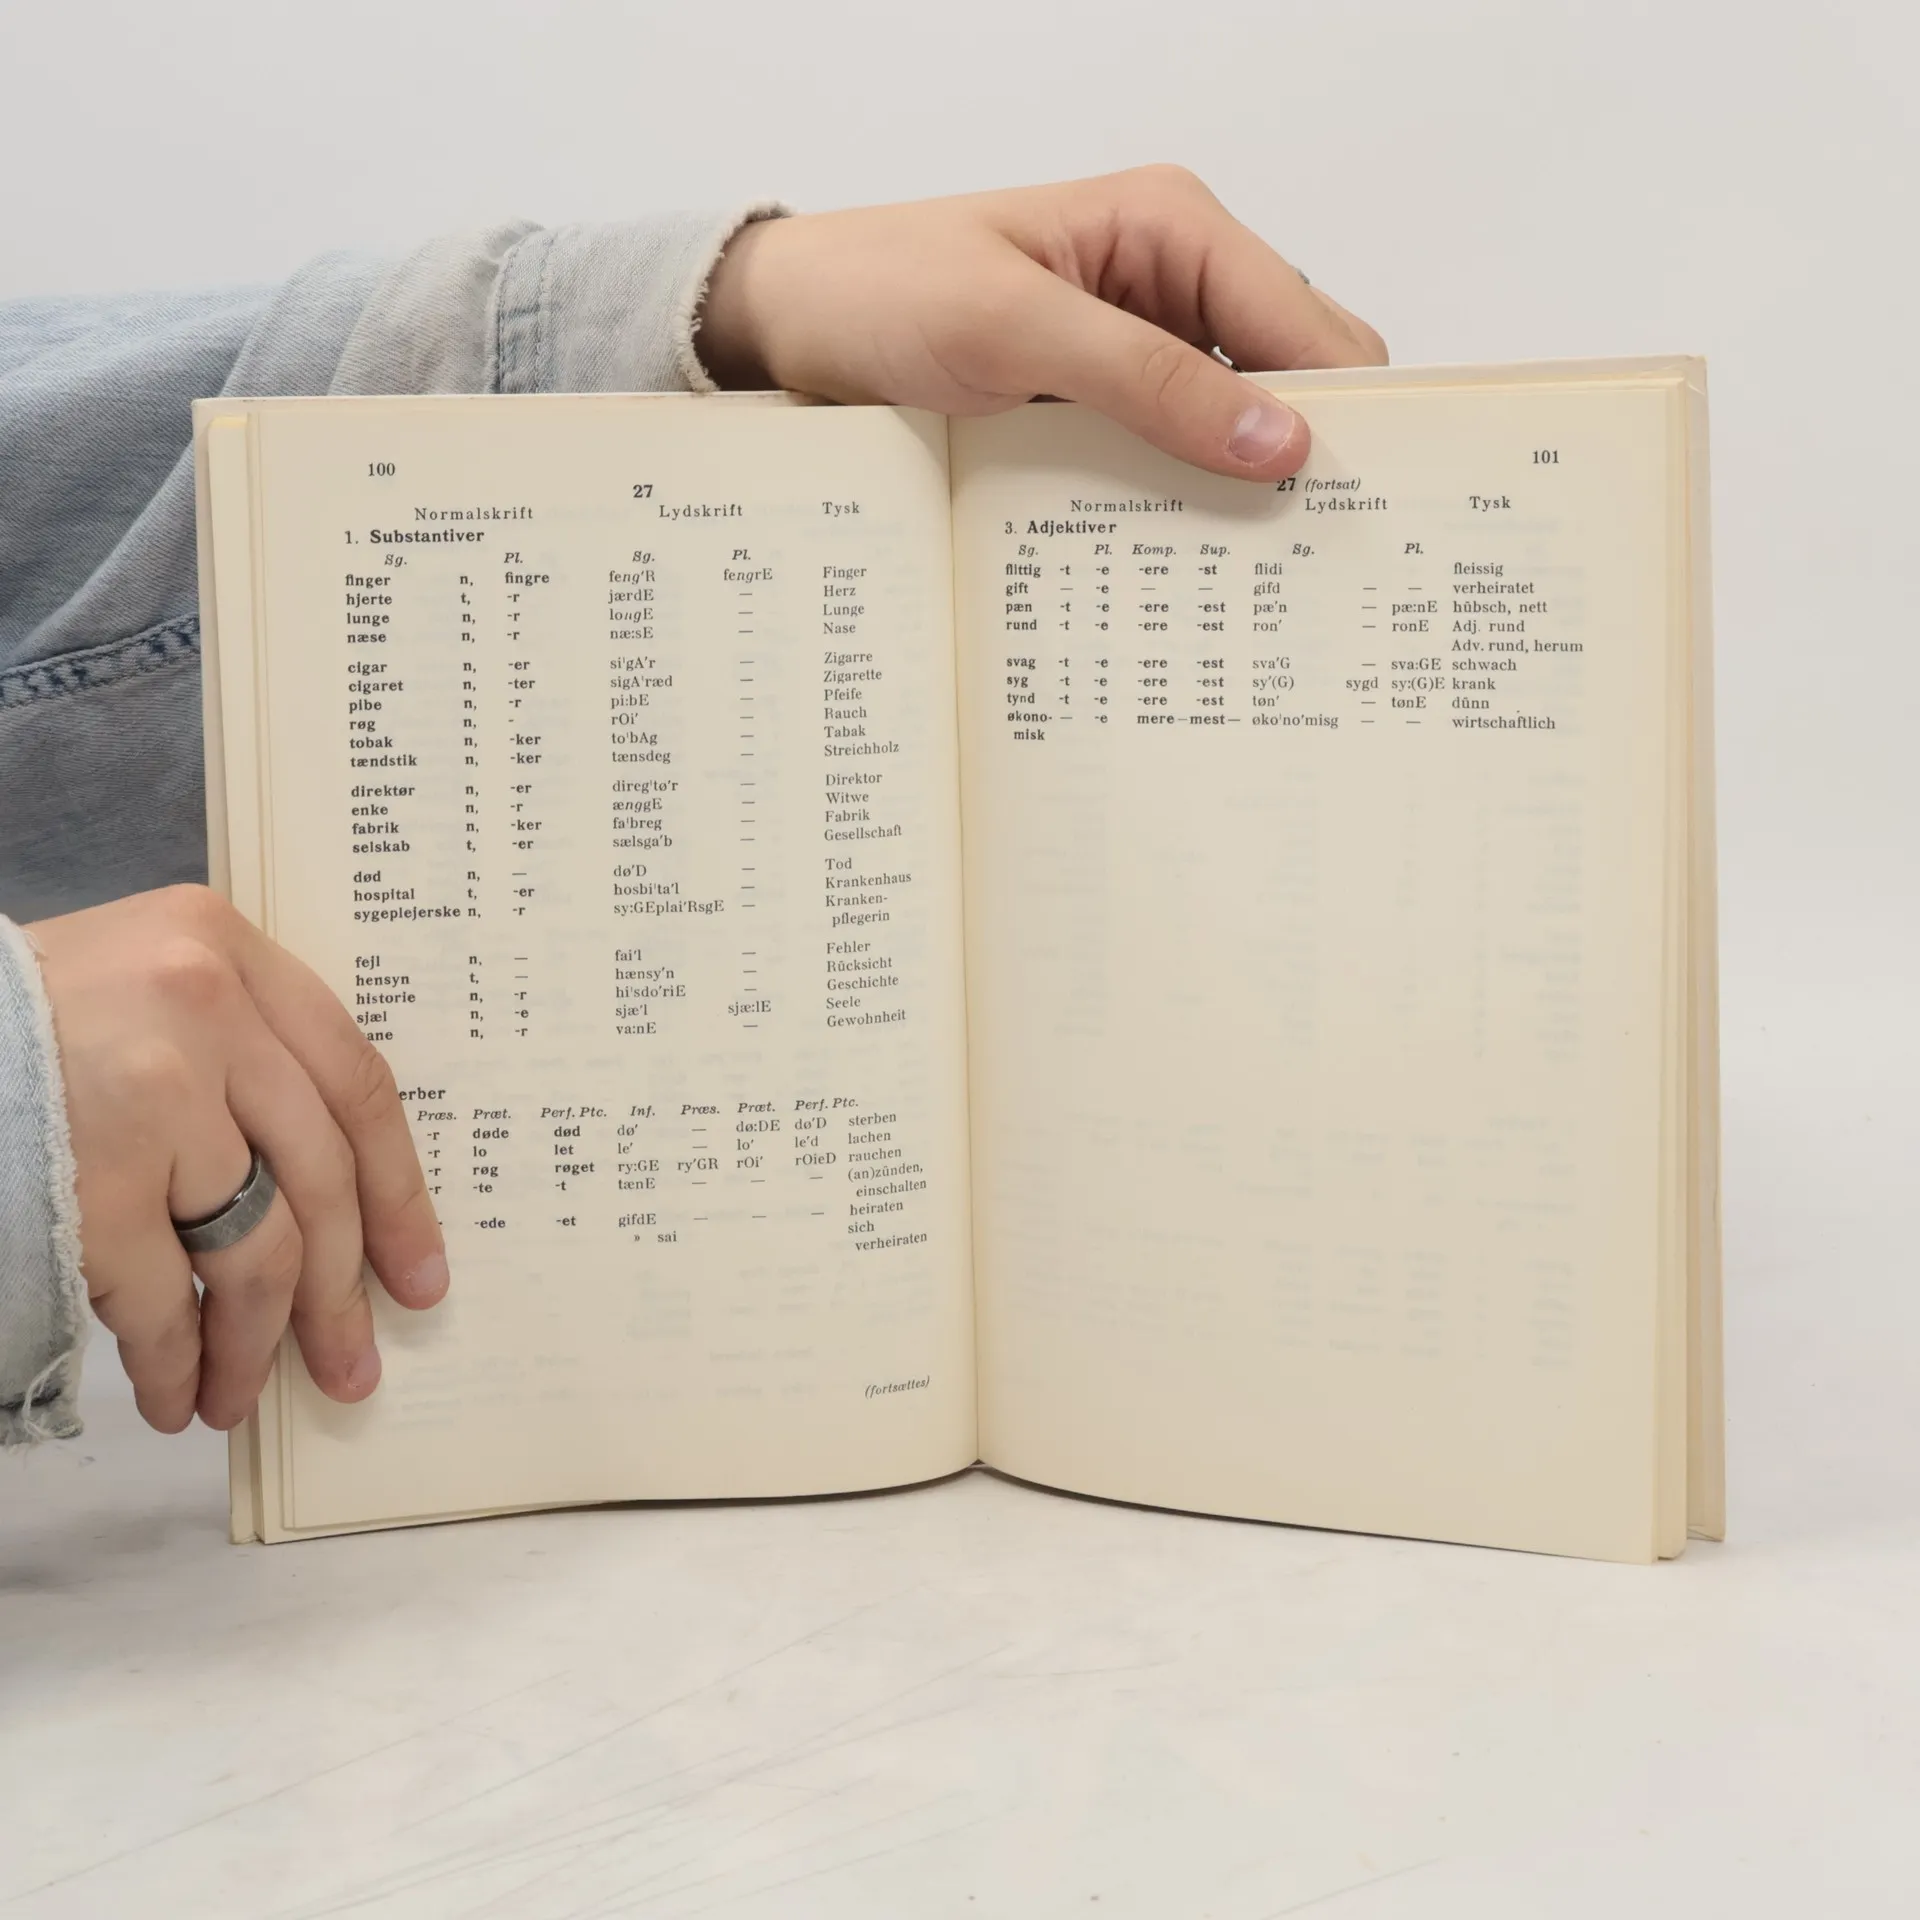 100
27
Normalskrift Lydskrift Tysk
1. Substantiver
Sg. Pl. Sg. Pl.
finger n, fingre feng'R fengrE Finger
hjerte t, -r jærdE — Herz
lunge n, -r longE — Lunge
næse n, -r næ:sE — Nase
cigar n, -er si'gA'r — Zigarre
cigaret n, -ter sigA'ræd — Zigarette
pibe n, -r pi:bE — Pfeife
røg n, - rOi' — Rauch
tobak n, -ker to'bAg — Tabak
tændstik n, -ker tænsdeg — Streichholz
direktør n, -er direg'tø'r — Direktor
enke n, -r ænggE — Witwe
fabrik n, -ker fa'breg — Fabrik
selskab t, -er sælsga'b — Gesellschaft
død n, — dø'D — Tod
hospital t, -er hosbi'ta'l — Krankenhaus
sygeplejerske n, -r sy:GEplai'RsgE — Kranken-
pflegerin
fejl n, — fai'l — Fehler
hensyn t, — hænsy'n — Rücksicht
historie n, -r hi'sdo'riE — Geschichte
sjæl n, -e sjæ'l sjæ:lE Seele
ane n, -r va:nE — Gewohnheit
erber
Præs. Præt. Perf. Ptc. Inf. Præs. Præt. Perf. Ptc.
-r døde død dø' — dø:DE dø'D sterben
-r lo let le' — lo' le'd lachen
-r røg røget ry:GE ry'GR rOi' rOieD rauchen
-r -te -t tænE — — — (an)zünden,
einschalten
- -ede -et gifdE — — — heiraten
» sai sich
verheiraten
(fortsættes)
101
27 (fortsat)
Normalskrift Lydskrift Tysk
3. Adjektiver
Sg. Pl. Komp. Sup. Sg. Pl.
flittig -t -e -ere -st flidi fleissig
gift — -e — — gifd — — verheiratet
pæn -t -e -ere -est pæ'n — pæ:nE hübsch, nett
rund -t -e -ere -est ron' — ronE Adj. rund
Adv. rund, herum
svag -t -e -ere -est sva'G — sva:GE schwach
syg -t -e -ere -est sy'(G) sygd sy:(G)E krank
tynd -t -e -ere -est tøn' — tønE dünn
økono- — -e mere — mest — øko'no'misg — — wirtschaftlich
misk